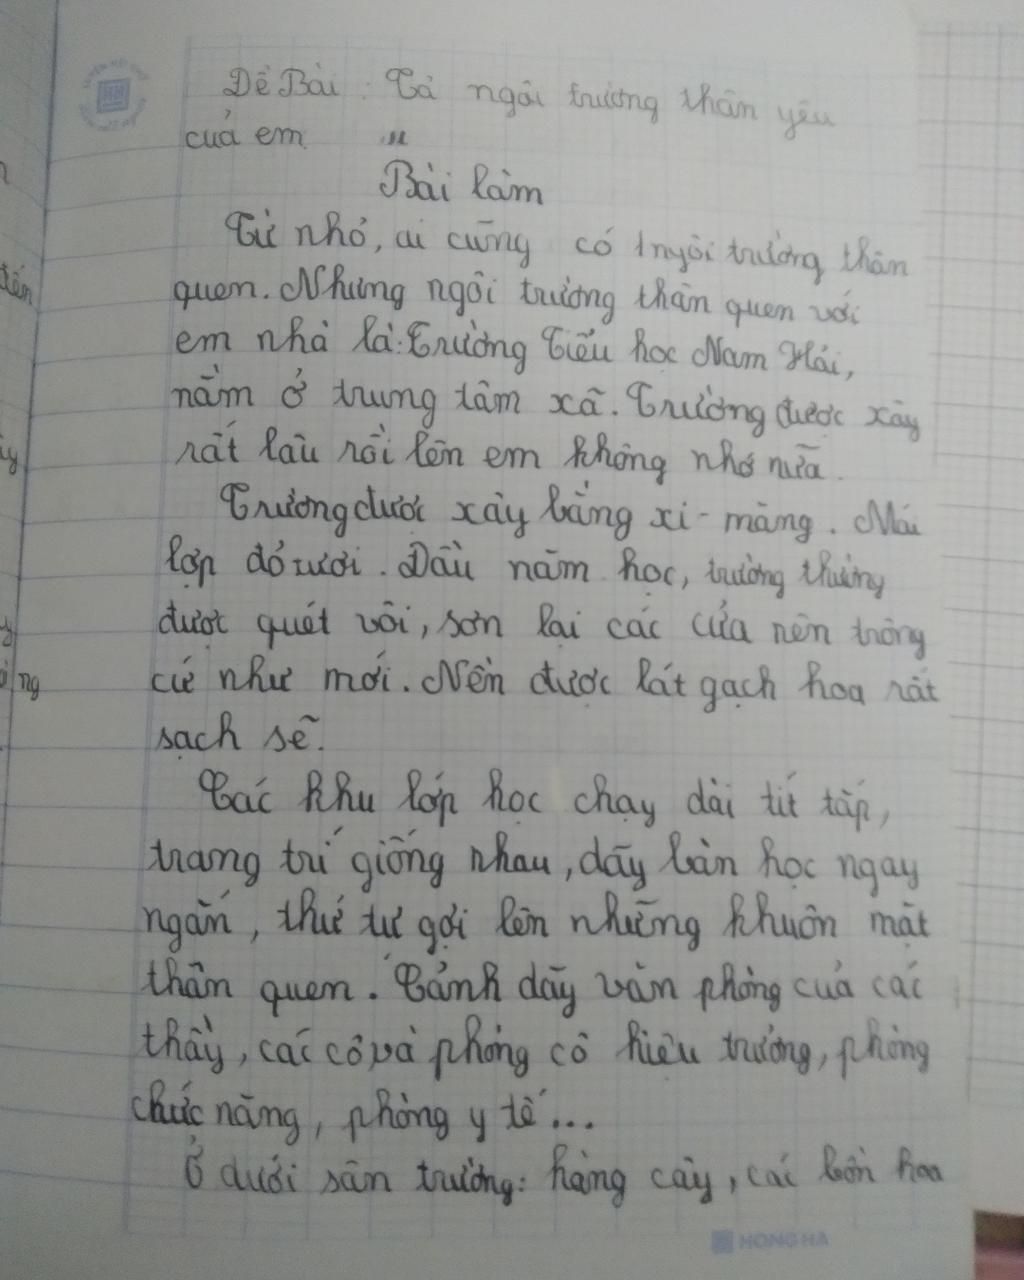 Đề Bài : Tả ngôi trường thân yêu
của em
Bài làm
Từ nhỏ, ai cũng có 1 ngôi trường thân
quen. Nhưng ngôi trường thân quen với
em nhà là: Trường Tiểu học Nam Hải,
nằm ở trung tâm xã. Trường được xây
rất lâu rồi lên em không nhớ nữa.
Trường được xây bằng xi-măng. Mái
lợp đỏ tươi. Đầu năm học, trường thường
được quét vôi, sơn lại các cửa nên trông
cứ như mới. Nền được lát gạch hoa rất
sạch sẽ.
Các khu lớp học chạy dài tít tắp,
trang trí giống nhau, dãy bàn học ngay
ngắn, thứ tự gợi lên những khuôn mặt
thân quen. Cảnh dãy văn phòng của các
thầy, các cô và phòng cô hiệu trưởng, phòng
chức năng, phòng y tế...
Ở dưới sân trường: hàng cây, các bồn hoa
HONG HA
tến
ng